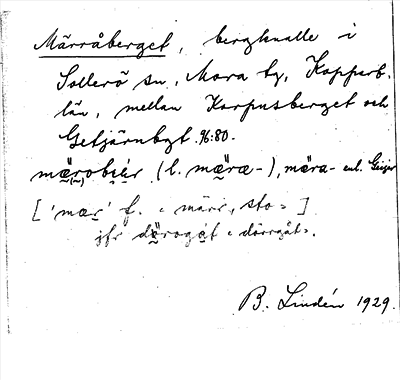 Märråberget, bergknalle i
Sollerö sn, Mora tg, Kopparb.
län, mellan Korpusberget och
Getjärnbgt. 96:80.
mærobiẹr (l. mæræ-), mära- enl. Geijer
['mær' f. "märr, sto"]
jfr dörogȧt "dörrgåt".
B. Lindén 1929.